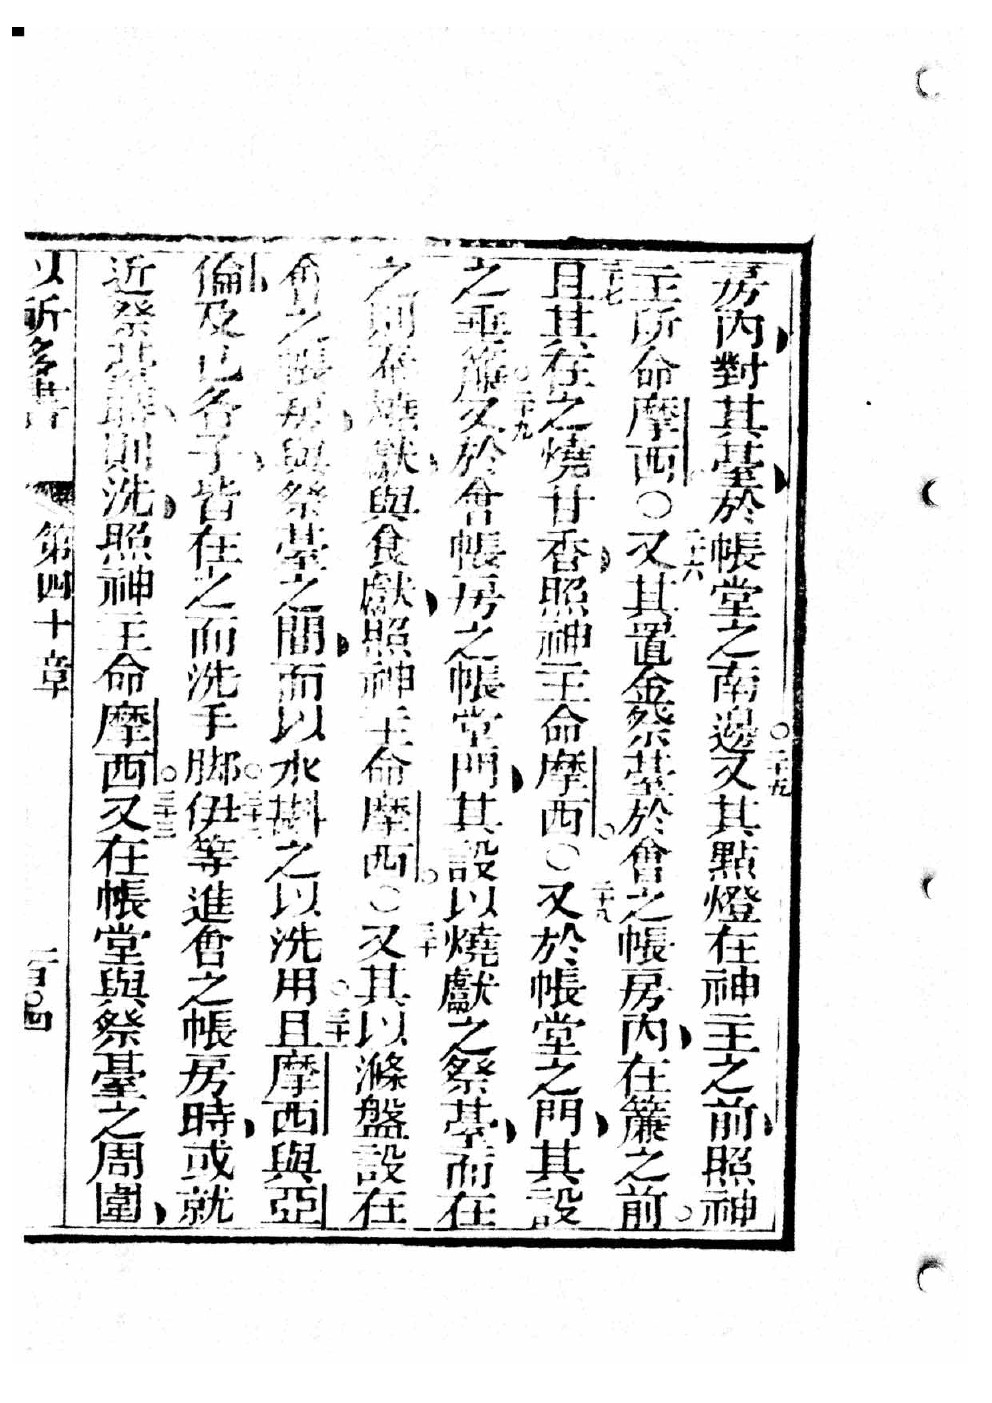 房内對其臺於帳堂之南邊○二十五又其點燈在神主之前照神
主所命摩西○二十六又其置金祭臺於會之帳房内在簾之前
二十七且其在之燒甘香照神主命摩西○二十八又於帳堂之門其設
之垂簾○二十九又於會帳房之帳堂門其設以燒獻之祭基而在
之則奉燒獻與食獻照神主命摩西○三十又其以滌盤設在
會之帳房與祭臺之間而以水斟之以洗用○三十一且摩西與亞
倫及己各子皆在之而洗手脚○三十二伊等進會之帳房時或就
近祭基時則洗照神主命摩西○三十三又在帳堂與祭臺之周圍
以所多書 第四十章 一百○四